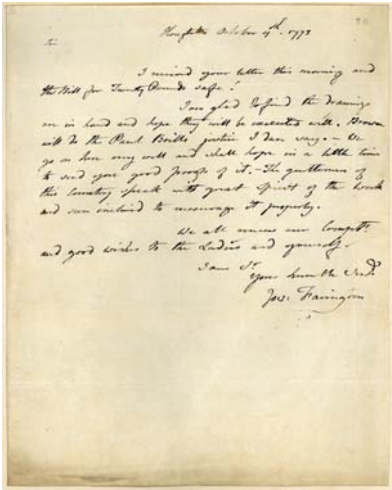 Houghton October 4th. 1773
Sir
I received your letter this morning and
the Bill for Twenty Pounds safe.
I am glad to find the drawings
are in hand and hope they will be executed well. Browne
will do the Paul Brills justice I dare say. – We
go on here very well and shall hope in a little time
to send you good proofs of it. – The gentlemen of
this Country speak with great spirit of the work
and seem inclined to encourage it properly.
We all unite our Complts.
and good wishes to the Ladies and yourself.
I am Sr.
Your humble Servt.
Jos: Farington